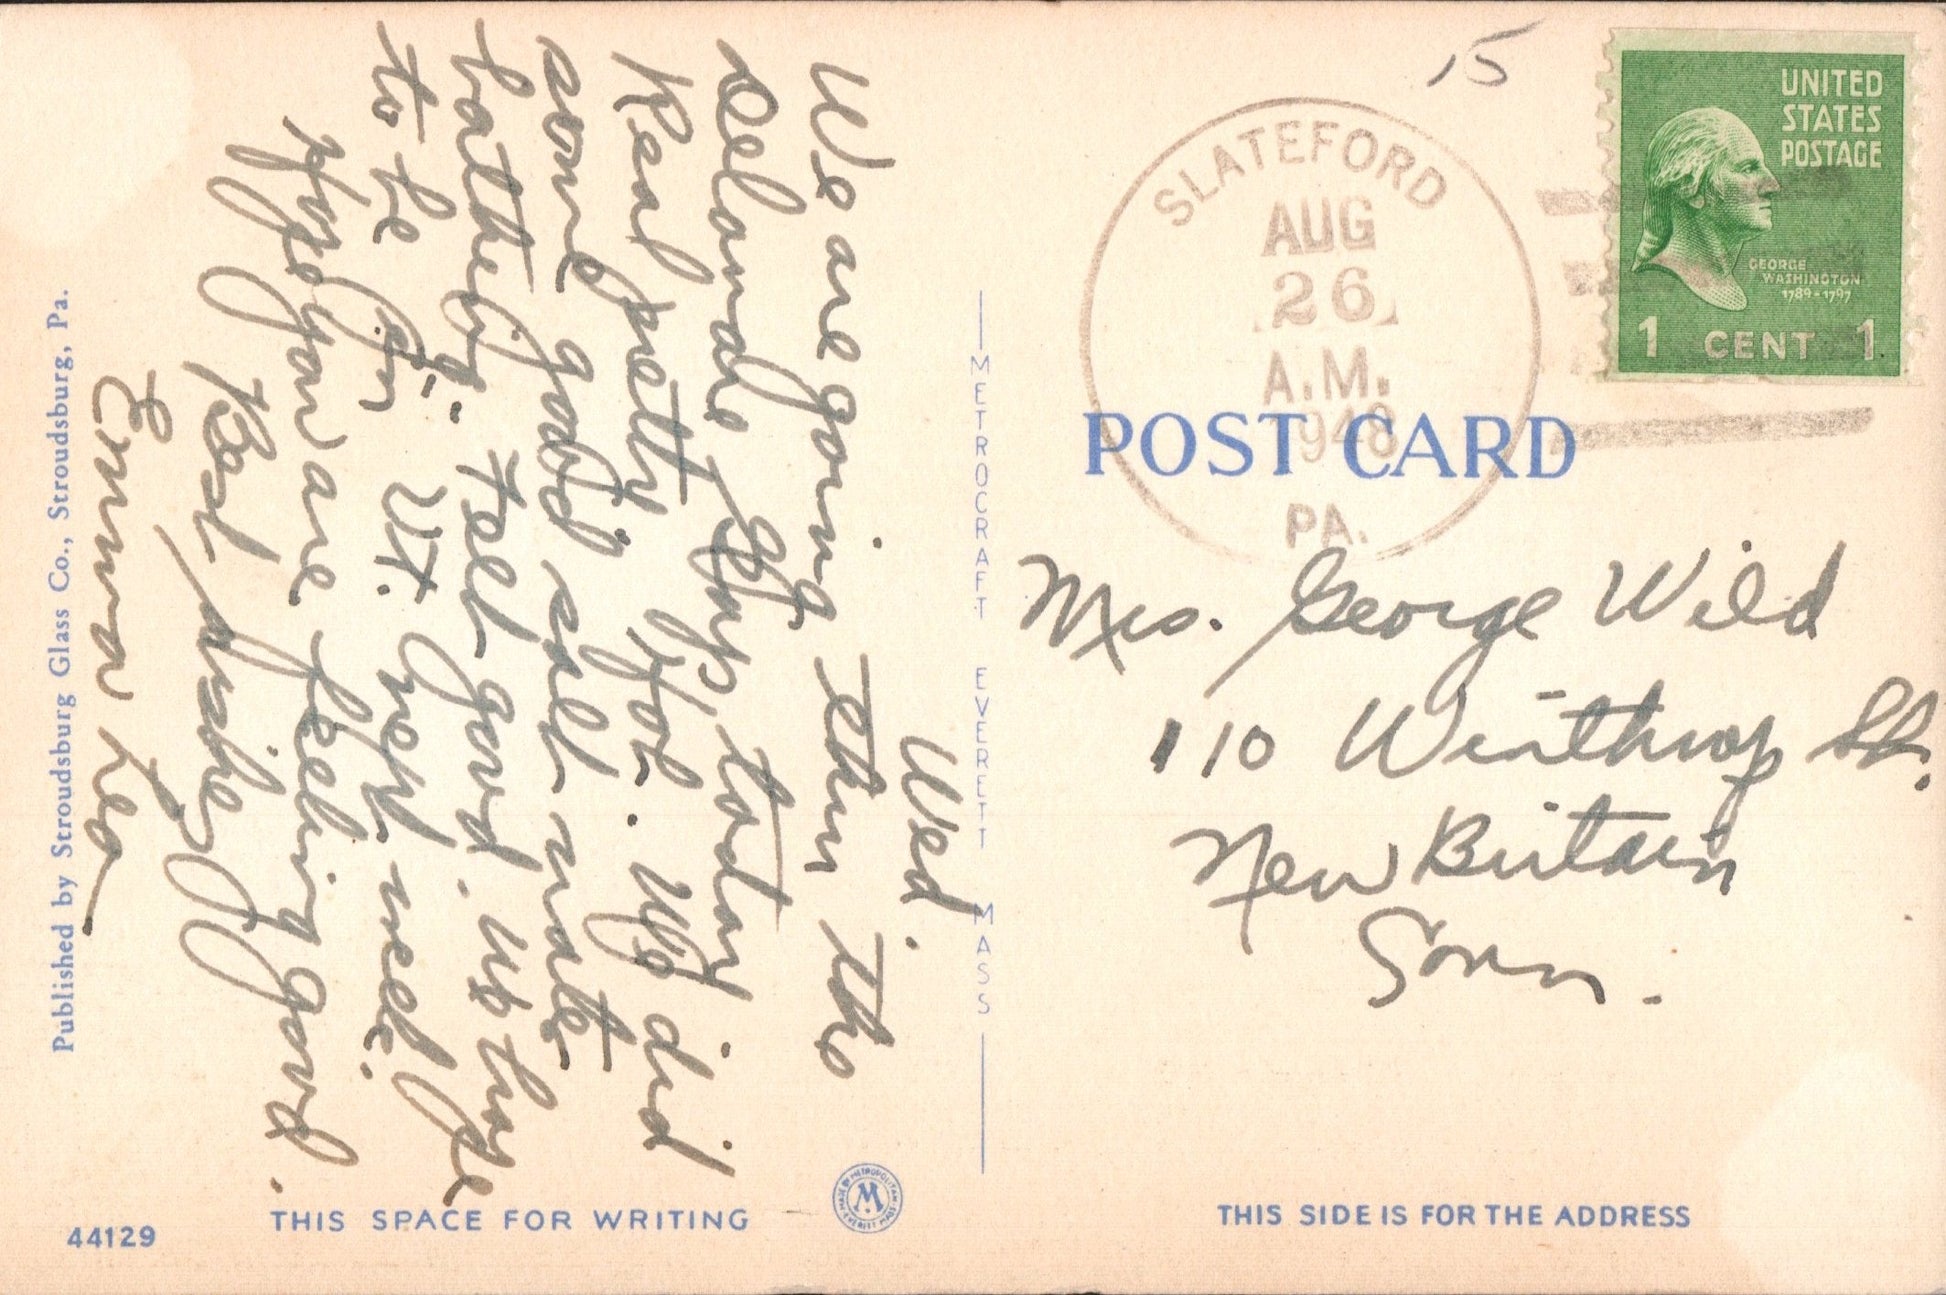 Wed.
We are going thru the
Delaware Gap, today
Real pretty, Hot. We did
some good salt water
bathing. Felt good. We hope
to be in Vt. next week.
Hope you are feeling good.
Best wishes
Emma
15
UNITED
STATES
POSTAGE
GEORGE
WASHINGTON
1789-1797
1 CENT 1
SLATEFORD
AUG
26
A.M.
1948
PA.
POST CARD
Mrs. George Wild
110 Winthrop St.
New Britain
Conn.
METROCRAFT EVERETT MASS
Published by Stroudsburg Glass Co., Stroudsburg, Pa.
THIS SPACE FOR WRITING
MADE BY METROPOLITAN
EVERETT MASS
M
THIS SIDE IS FOR THE ADDRESS
44129